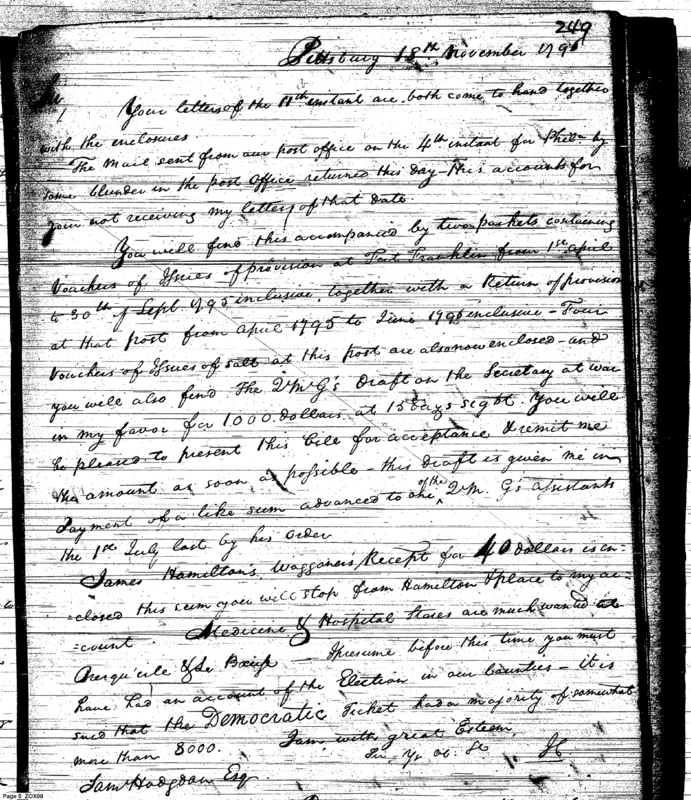 249
Pittsburg 18th November 1796
Sir
Your letters of the 11th instant are both come to hand together
with the enclosures.
The Mail sent from our post office on the 4th instant for Phila. by
some blunder in the post office returned this day – This accounts for
your not receiving my letters of that date.
You will find this accompanied by two packets containing
Vouchers of Issues of provision at Fort Franklin from 1st April
to 30th of Sept. 1795 inclusive, together with a Return of provision
at that post from April 1795 to June 1796 inclusive – Four
Vouchers of Issues of salt at this post are also now enclosed – and
you will also find The QMG's draft on the Secretary at war
in my favor for 1000 dollars at 15 days sight. You will
be pleased to present this bill for acceptance & remit me
the amount as soon as possible – this draft is given me in
Payment of a like sum advanced to one of the Q M. G's assistants
the 1st July last by his order
James Hamilton's Waggoners Recept for 40 dollars is en=
=closed this sum you will stop from Hamilton & place to my ac=
=count. Medicine & Hospital Stores are much wanted at
& Le Boeuf – I presume before this time you must
have had an account of the Election in our Counties – it is
said that the Democratic Ticket had a majority of somewhat
more than 3000. I am with great Esteem,
Sir Yr. Ob. St
Saml Hodgdon Esq
Page 5 ZOX08